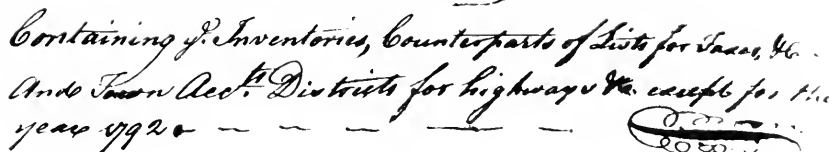 Containing yᵉ Inventories, Counterparts of Lists for Taxes, &c
And Town Accᵗˢ Districts for highways &c. except for the
year 1792